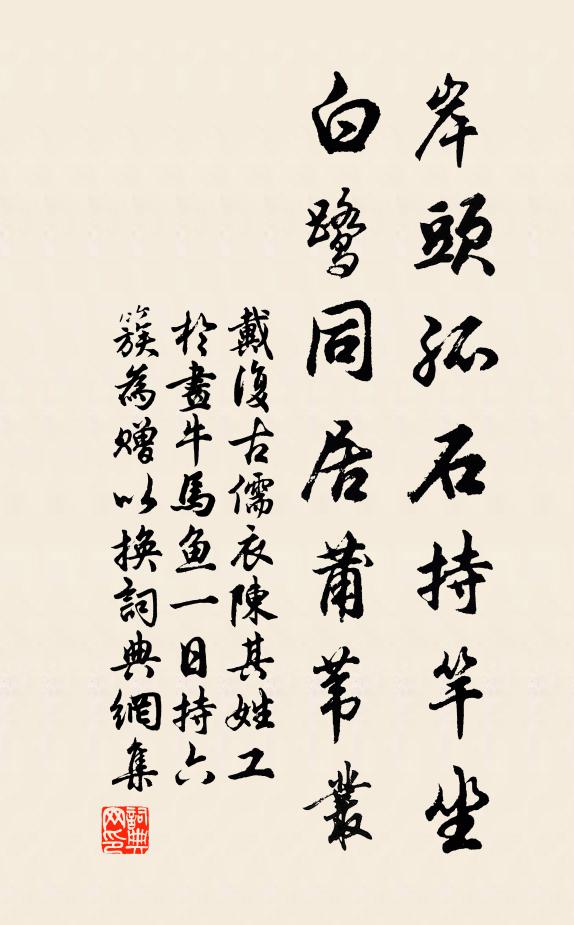 岸頭孤石持竿坐
白鹭同居蒲苇叢
戴復古儒衣陳其姓工
於畫牛馬魚一日持六
簇為贈以換詞典網集
詞典網印